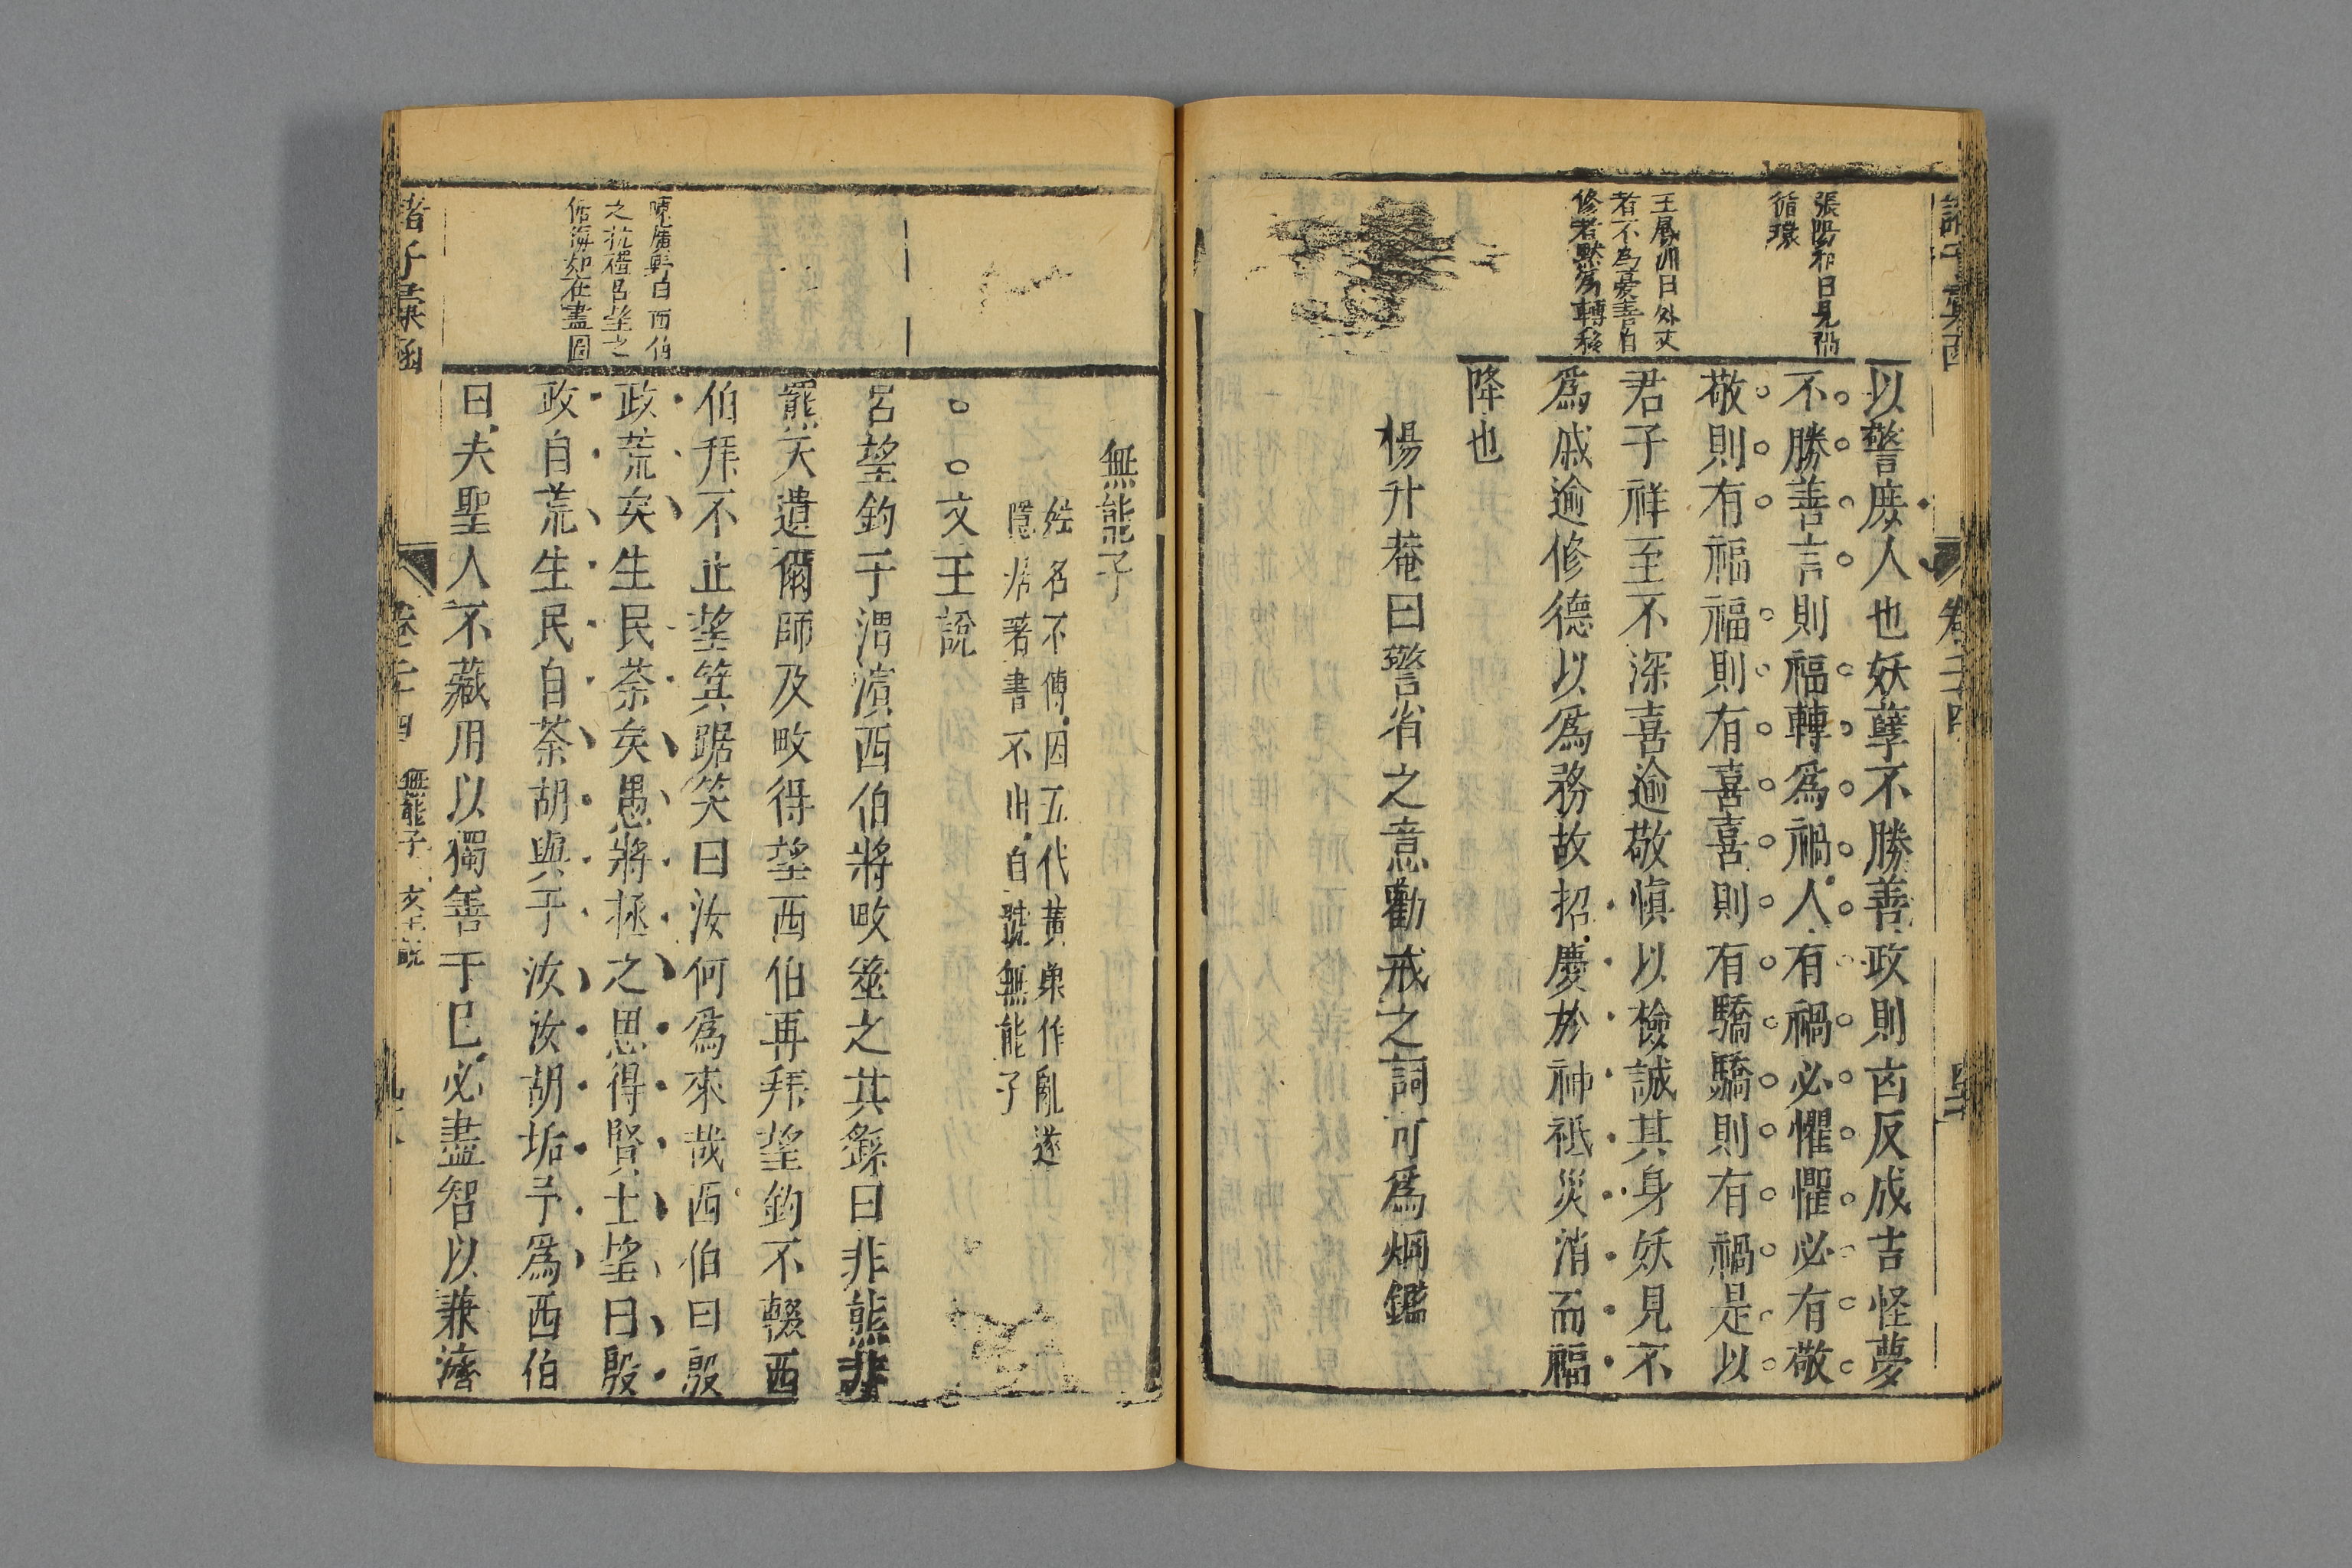 張陽和曰見禍
循環
王鳳洲曰外灾
者不為憂善自
修者默為轉移
以警庶人也妖孽不勝善政則凶反成吉怪夢
不勝善言則福轉爲禍人有禍必懼懼必有敬
敬則有福福則有喜喜則有驕驕則有禍是以
君子祥至不深喜逾敬慎以儉誠其身妖見不
爲戚逾修德以爲務故招慶於神祇災消而福
降也
楊升菴曰警省之意勸戒之詞可爲烱鑑
無能子
姓名不傳因五代黃巢作亂遂
隱居著書不出自號無能子
文王說
呂望釣于渭濱西伯將畋筮之其繇曰非熊非
羆天遺爾師及畋得望西伯再拜望釣不輟西
伯拜不止望箕踞笑曰汝何爲來哉西伯曰殷
政荒矣生民荼矣愚將拯之思得賢士望曰殷
政自荒生民自荼胡與于汝汝胡垢予爲西伯
曰夫聖人不藏用以獨善于巳必盡智以兼濟
陳廣野曰西伯
之抗禮呂望之
倨侮如在畫圖
諸子彙函
卷二十四
無能子
文王說